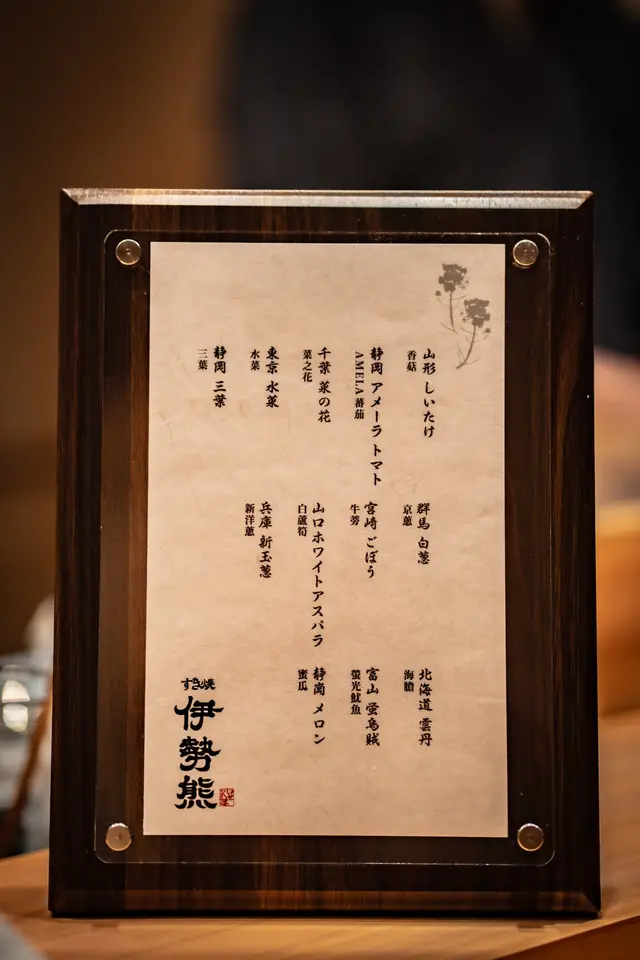 山形 しいたけ
香菇
静岡 アメーラ トマト
AMELA蕃茄
千葉 菜の花
菜之花
東京 水菜
水菜
静岡 三葉
三葉
群馬 白葱
京蔥
宮崎 ごぼう
牛蒡
山口ホワイトアスパラ
白蘆筍
兵庫 新玉葱
新洋蔥
北海道 雲丹
海膽
富山 蛍烏賊
螢光魷魚
静岡 メロン
蜜瓜
すき焼
伊勢熊